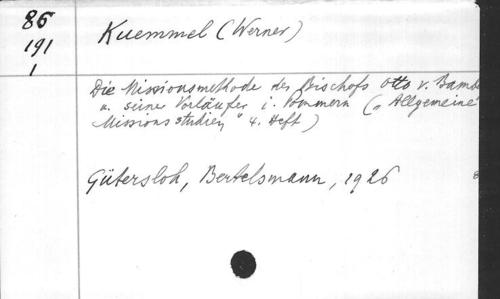 86
191
1
Kuemmel (Werner)
Die Missionsmethode des Bischofs Otto v. Bamb
u. seiner Vorläufer i. Pommern („Allgemeine
Missionsstudien" 4. Heft)
Gütersloh, Bertelsmann, 1926
8